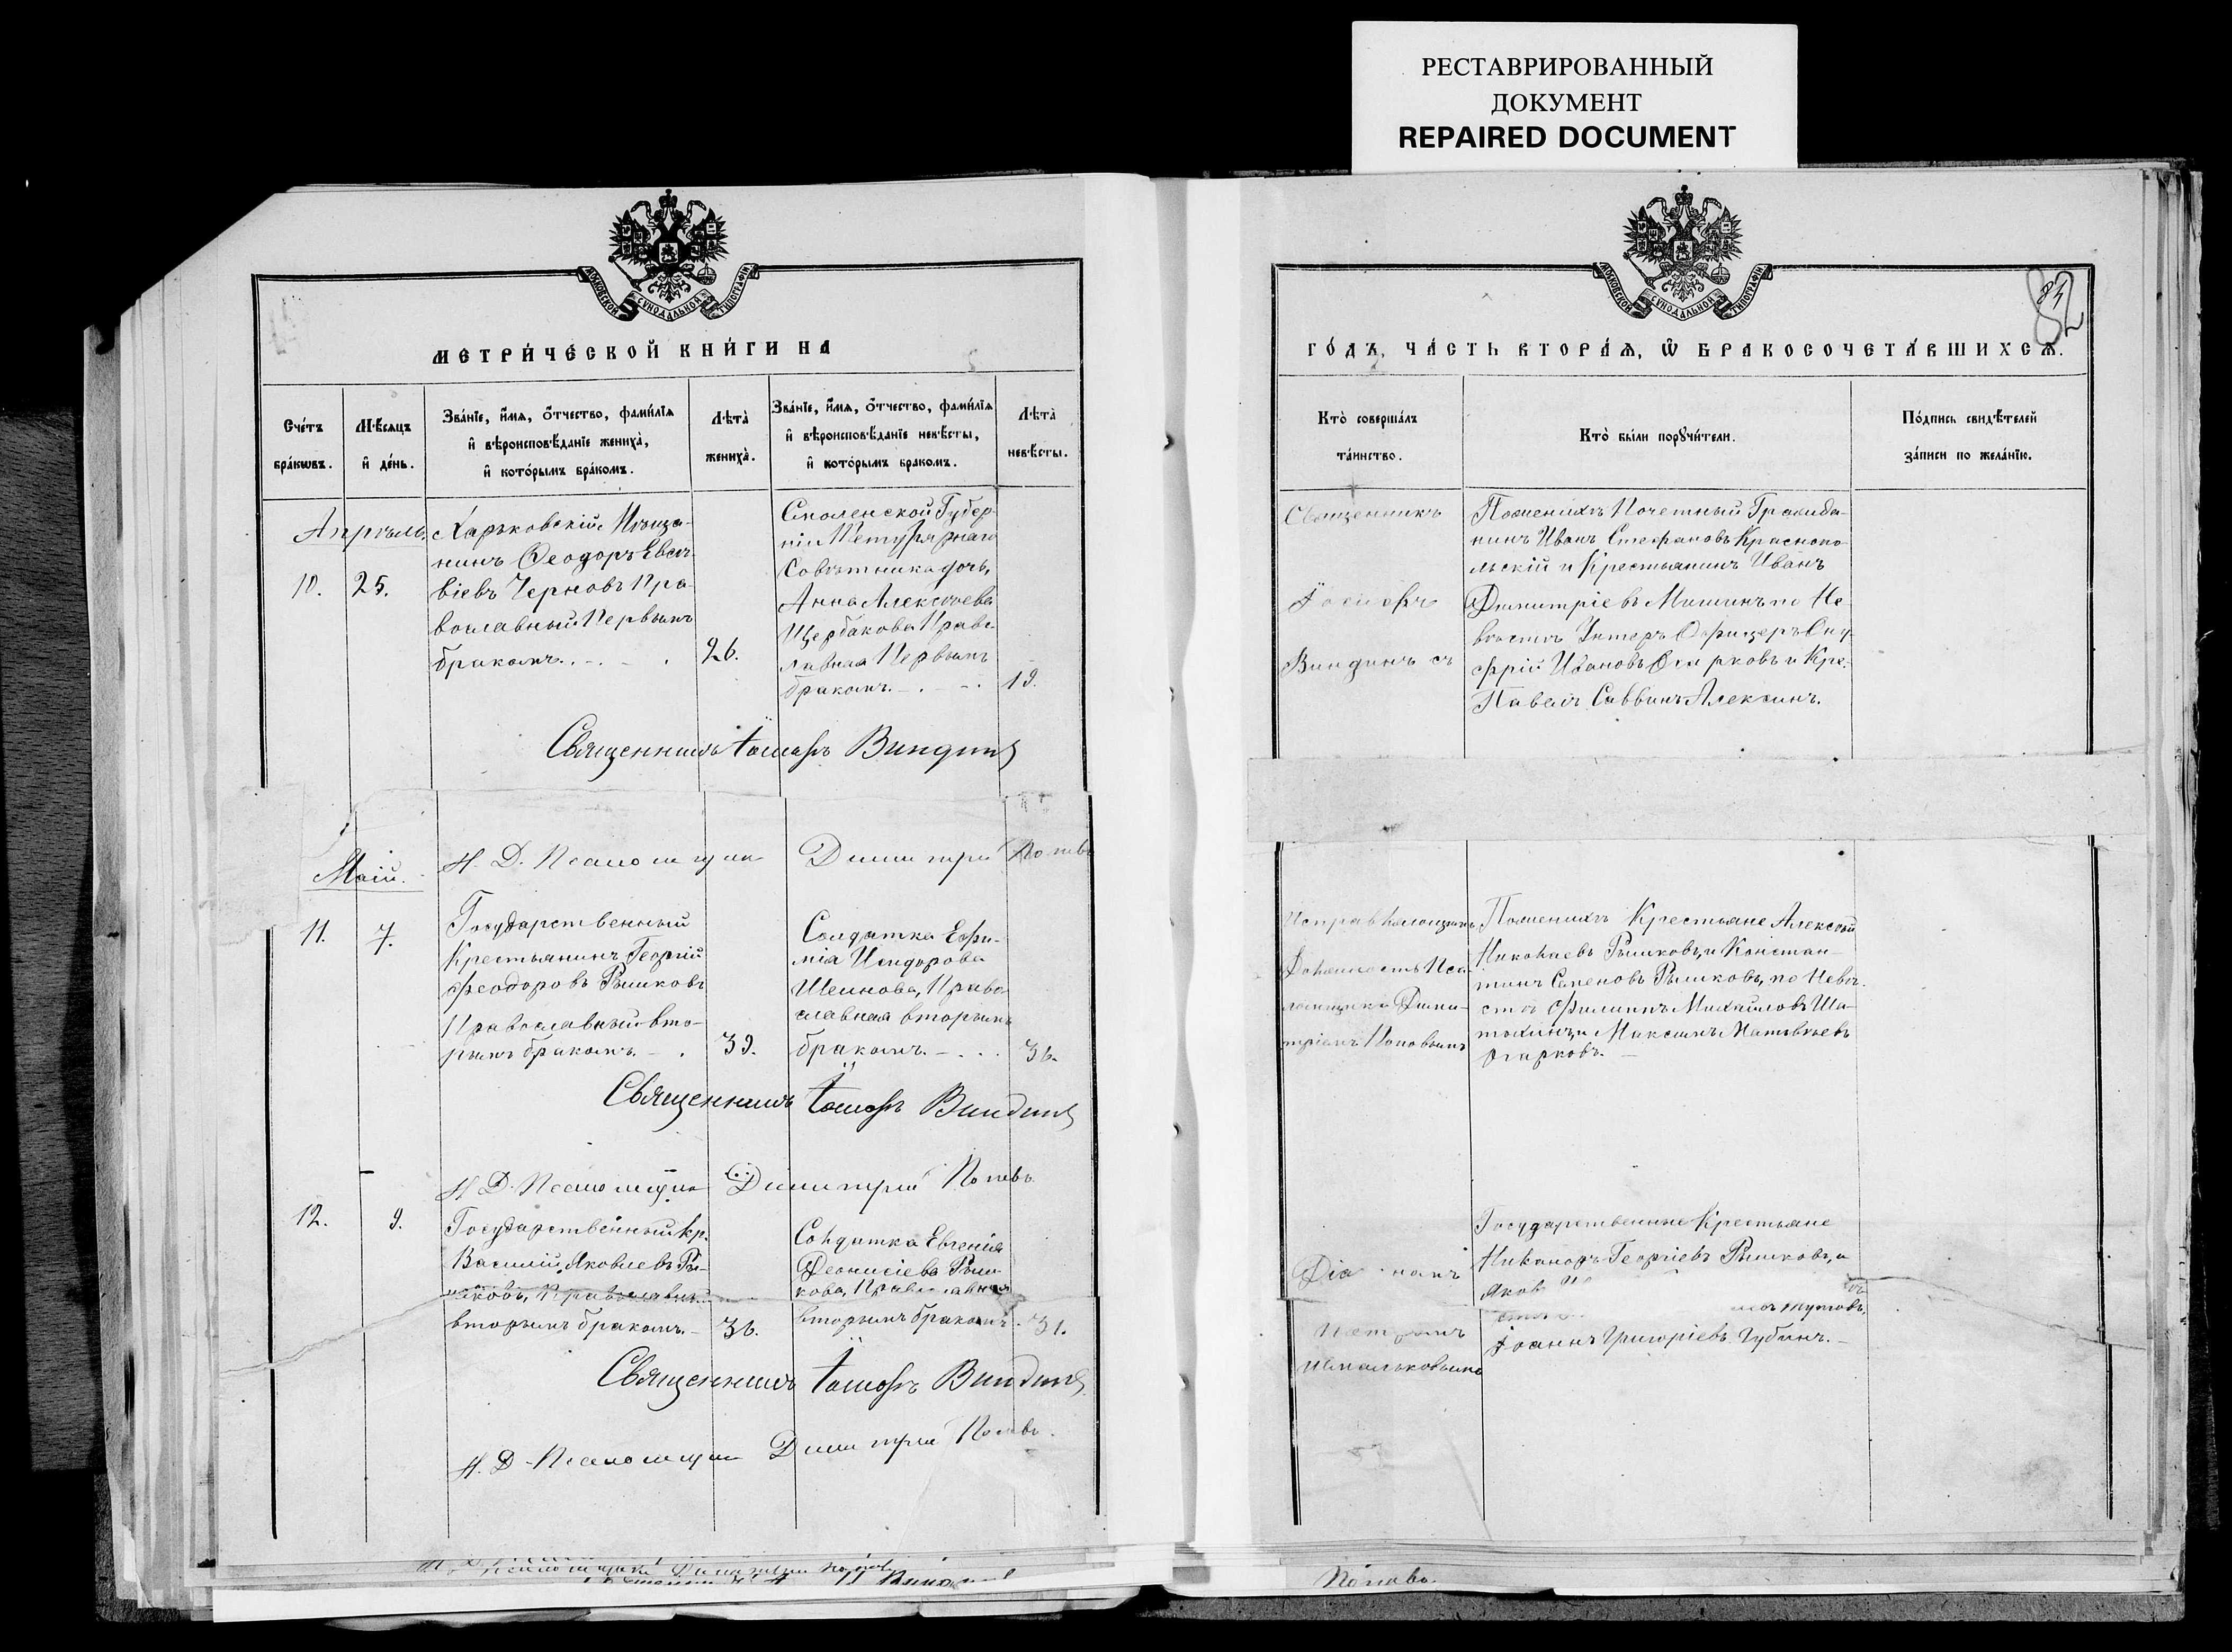 РЕСТАВРИРОВАННЫЙ
ДОКУМЕНТ
REPAIRED DOCUMENT
МОСКОВСКОЙ СѴНОДАЛЬНОЙ ТИПОГРАФІИ
МЕТРИ́ЧЕСКОЙ КНИ́ГИ НА
Счéтъ
брáкѡвъ.
Мѣ́сяцъ
и҆ дéнь.
Звáніе, и҆́мѧ, ѻ҆́тчество, фами́лїѧ
и҆ вѣроисповѣ́данїе женихà,
и҆ котóрымъ брáкомъ.
Лѣ́тà
женихà.
Звáніе, и҆́мѧ, ѻ҆́тчество, фами́лїѧ
и҆ вѣроисповѣ́данїе невѣ́сты,
и҆ котóрымъ бракомъ.
Лѣ́тà
невѣ́сты.
Апрѣль.
10.
25.
Харьковскій Мѣща-
нинъ Ѳеодоръ Евсѣ-
віевъ Черновъ Пра-
вославный Первымъ
бракомъ.
26.
Смоленской Губер-
ніи Титулярнаго
Совѣтника дочь,
Анна Алексѣева
Щербакова Право
лавная Первымъ
бракомъ.
19.
Священникъ Іосифъ Виндинъ
И. Д. Псаломщика Димитрій Поповъ
Май.
11.
7.
Государственный
Крестьянинъ Георгій
Феодоровъ Рышковъ
Православный вто-
рымъ бракомъ.
39.
Солдатка Ефи-
мія Исидорова
Шеинова, Право
славная вторымъ
бракомъ.
36.
Священникъ Іосифъ Виндинъ
И. Д. Псаломщика Димитрій Поповъ
12.
9.
Государственный кр.
Василій Яковлевъ Ры-
шковъ, Православный
вторымъ бракомъ.
36.
Солдатка Евгенія
Деонисіева Рыш-
кова, Православная
вторымъ бракомъ.
31.
Священникъ Іосифъ Виндинъ
И. Д. Псаломщика Димитрій Поповъ
МОСКОВСКОЙ СѴНОДАЛЬНОЙ ТИПОГРАФІИ
82
ГО́ДЪ, ЧА́СТЬ ВТОРА́Ѧ, Ѽ БРАКОСОЧЕТА́ВШИХСѦ.
Ктò совершáлъ
тáинство.
Ктò бы́ли порꙋчи́тели.
Пóдпись свидѣ́телей
зáписи по желáнїю.
Священникъ
Іосифъ
Виндинъ съ
Поженихѣ Почетный Гражда-
нинъ Иванъ Стефановъ Краснопо-
льскій и Крестьянинъ Иванъ
Димитріевъ Мишинъ по Не-
вѣстѣ Унтеръ Офицеръ Ону-
фрій Ивановъ Огарковъ и Кре.
Павелъ Саввинъ Алехинъ.
Исправляющимъ
Должность Пса-
ломщика Дими-
тріемъ Поповымъ
Поженихѣ Крестьяне Алексѣй
Николаевъ Рышковъ, и Констан-
тинъ Семеновъ Рышковъ, по Невѣ-
стѣ Филиппъ Михайловъ Ша-
тохинъ, и Максимъ Матвѣевъ
Огарковъ.
Петромъ
Государственные Крестьяне
Никаноръ Георгіевъ Рышковъ, и
Яков
Іоаннъ Григоріевъ Губинъ.
Поповъ.